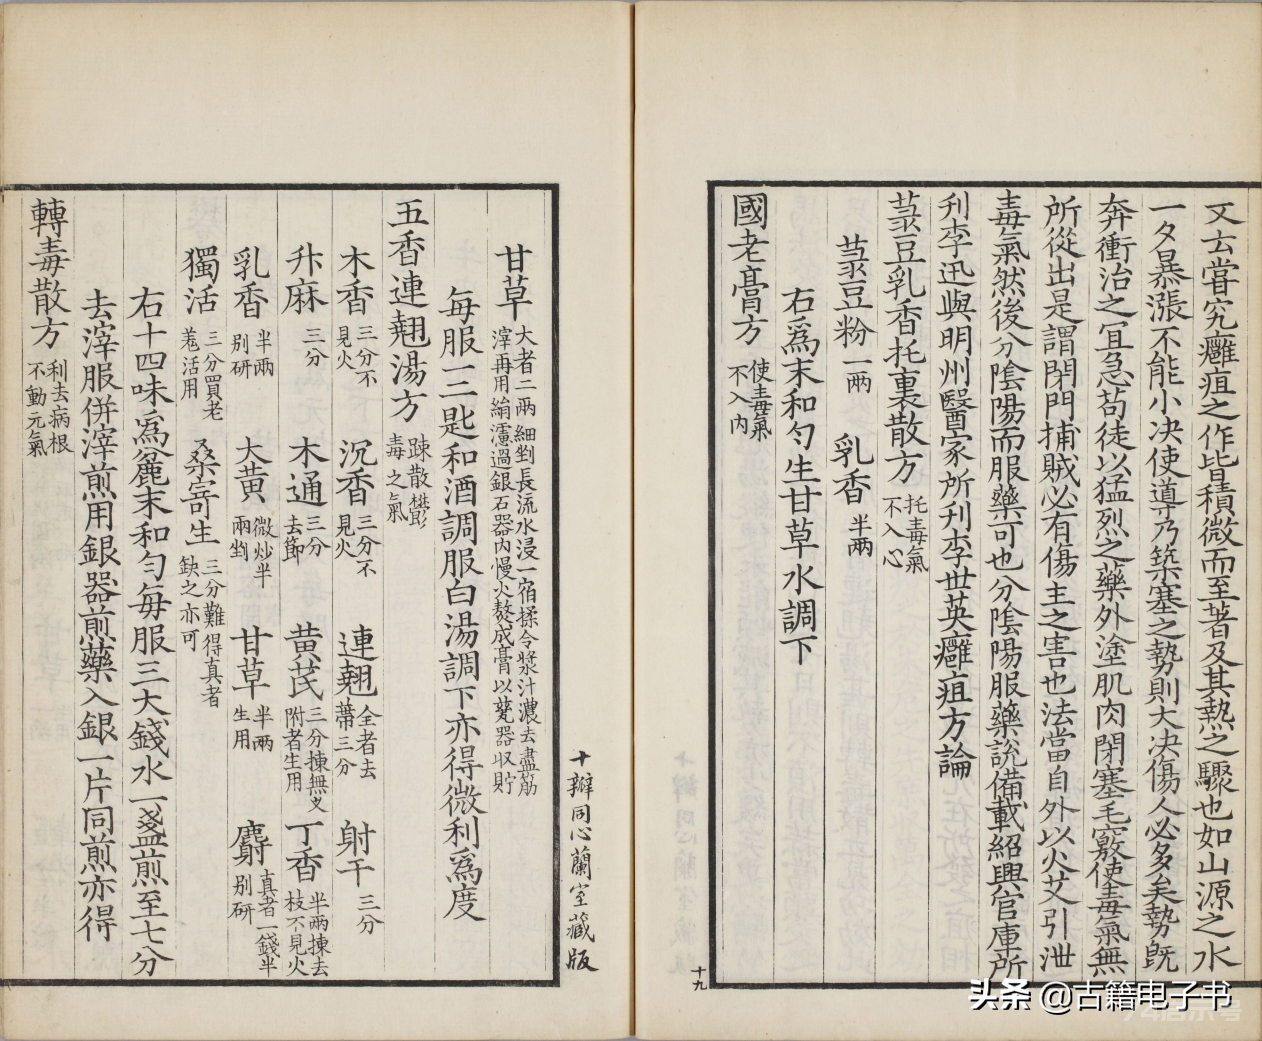 又云嘗究癰疽之作皆積微而至著及其熱之驟也如山源之水
一夕暴漲不能小决使導乃築塞之勢則大决傷人必多矣勢旣
奔衝治之冝急苟徒以猛烈之藥外塗肌肉閉塞毛竅使毒氣無
所從出是謂閉門捕賊必有傷主之害也法當自外以火艾引泄
毒氣然後分陰陽而服藥可也分陰陽服藥説備載紹興官庫所
刋李迅與明州醫家所刋李世英癰疽方論
菉豆乳香托裏散方 托毒氣不入心
菉豆粉 一兩 乳香 半兩
右爲末和匀生甘草水調下
國老膏方 使毒氣不入内
十九
甘草 大者二兩細剉長流水浸一宿揉令漿汁濃去盡筋滓再用絹濾過銀石器内慢火熬成膏以甆器收貯
每服一二匙和酒調服白湯調下亦得微利爲度
五香連翹湯方 踈散欝毒之氣
木香 三分不見火 沉香 三分不見火 連翹 全者去蔕三分 射干 三分
升麻 三分 木通 三分去節 黄茋 三分揀無叉附者生用 丁香 半兩揀去枝不見火
乳香 半兩别研 大黄 微炒半兩剉 甘草 半兩生用 麝 真者一錢半别研
獨活 三分買老羗活用 桑寄生 三分難得真者缺之亦可
右十四味爲麄末和匀每服三大錢水一盞煎至七分
去滓服併滓煎用銀器煎藥入銀一片同煎亦得
轉毒散方 利去病根不動元氣
十瓣同心蘭室藏版
头条 @古籍电子书